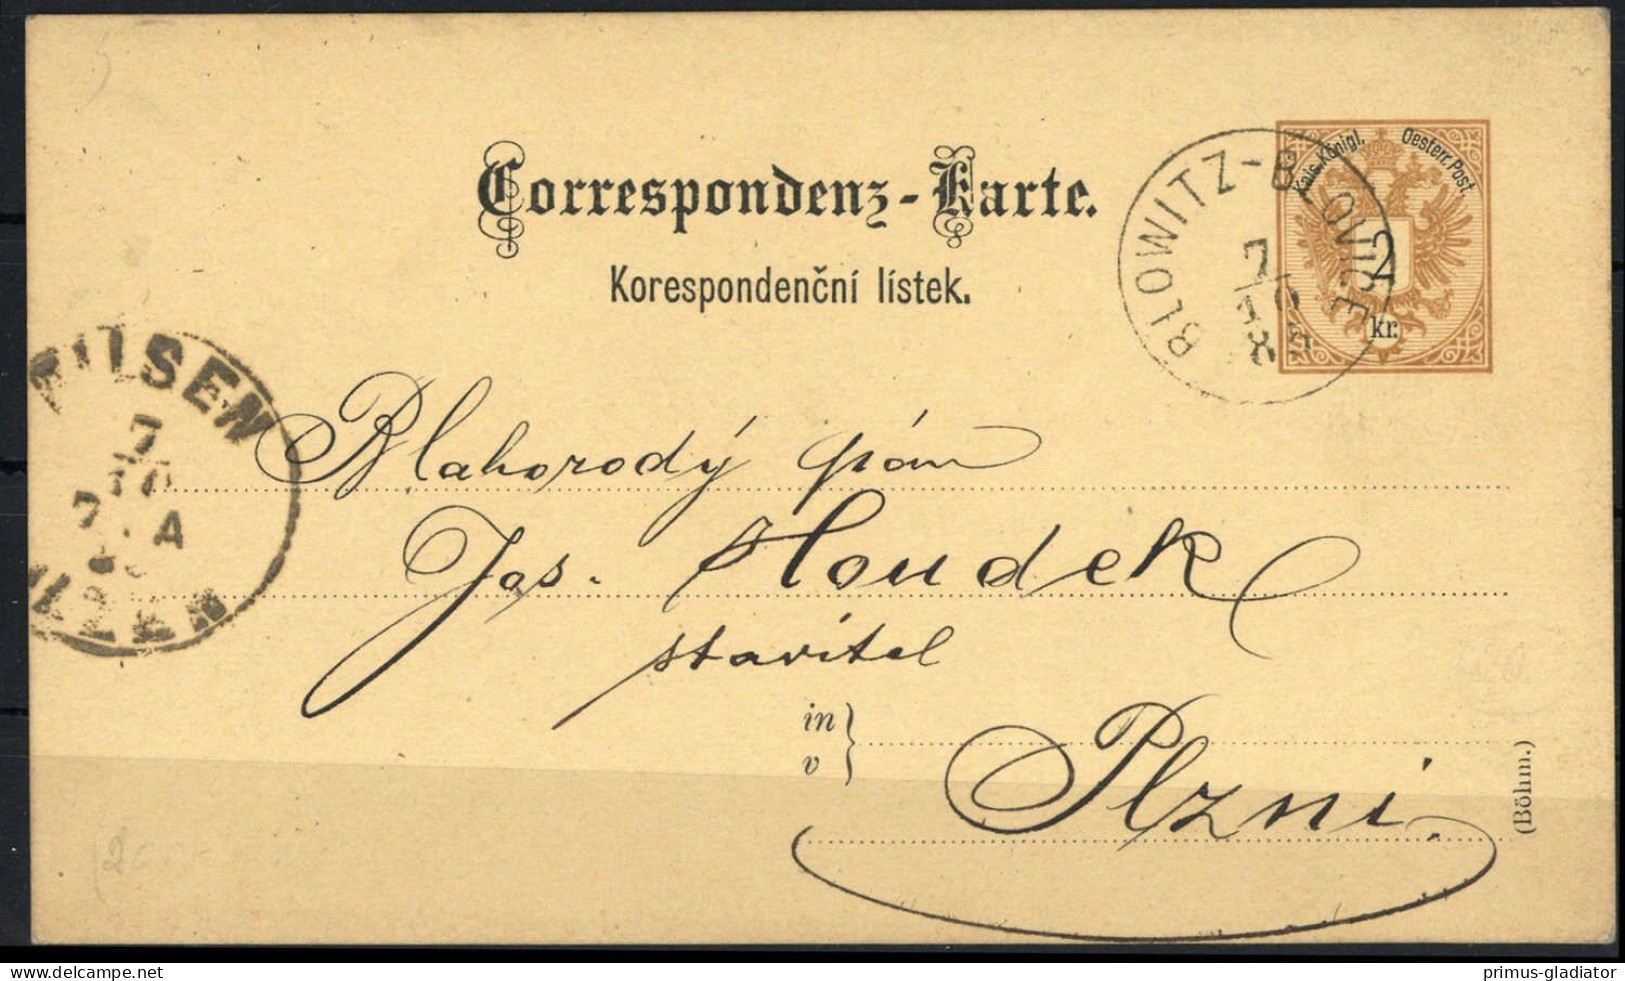 Correspondenz-Karte.
Korespondenční lístek.
Kais. Königl. Oesterr. Post.
2
kr.
BLOWITZ-BLOVICE
7
10
PILSEN
7
10
7 A
PLZEŇ
Blahorodý pán
Jos. Houdek
stavitel
in
v
Plzni.
(Böhm.)
delcampe.net
primus-gladiator